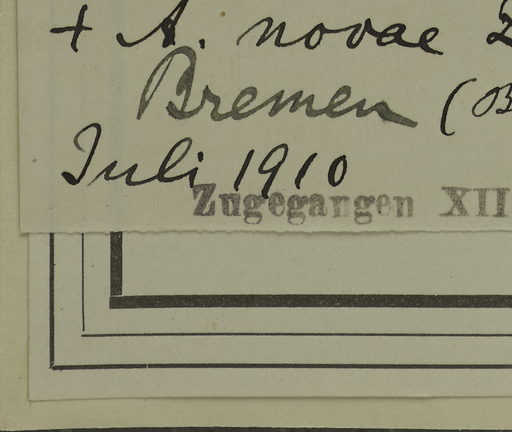 + A. novae
Bremen (B
Juli 1910
Zugegangen XII